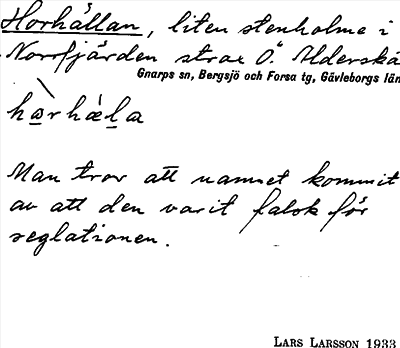 Horhällan, liten stenholme i
Norrfjärden strax O. Alderskä
Gnarps sn, Bergsjö och Forsa tg, Gävleborgs län
hơrhæla
Man tror att namnet kommit
av att den varit falsk för
seglationen.
LARS LARSSON 1933